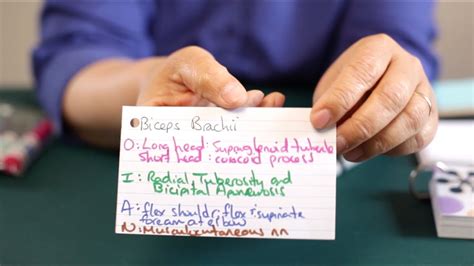 Biceps Brachii
O: Long head: Supraglenoid tubercle
short head: coracoid process
I: Radial Tuberosity and
Bicipital Aponeurosis
A: flex shouldr; flex + supinate
forearm at elbow
N: Musculocutaneous nn